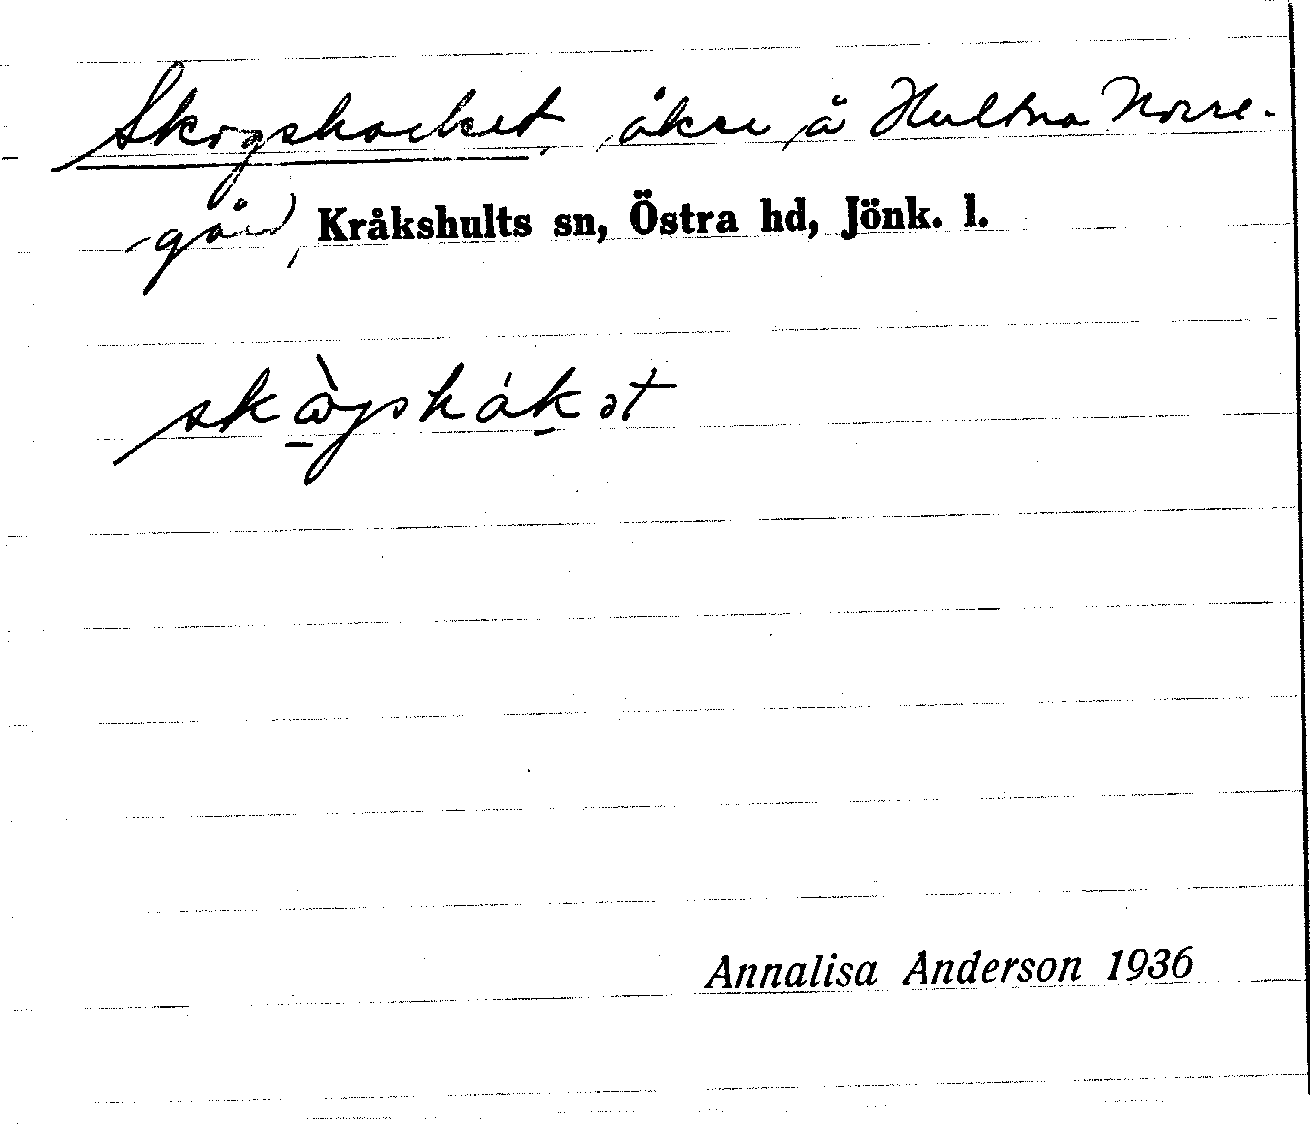 Skogshacket, åker å Hultna Norre-
gård, Kråkshults sn, Östra hd, Jönk. l.
skògshákət
Annalisa Anderson 1936